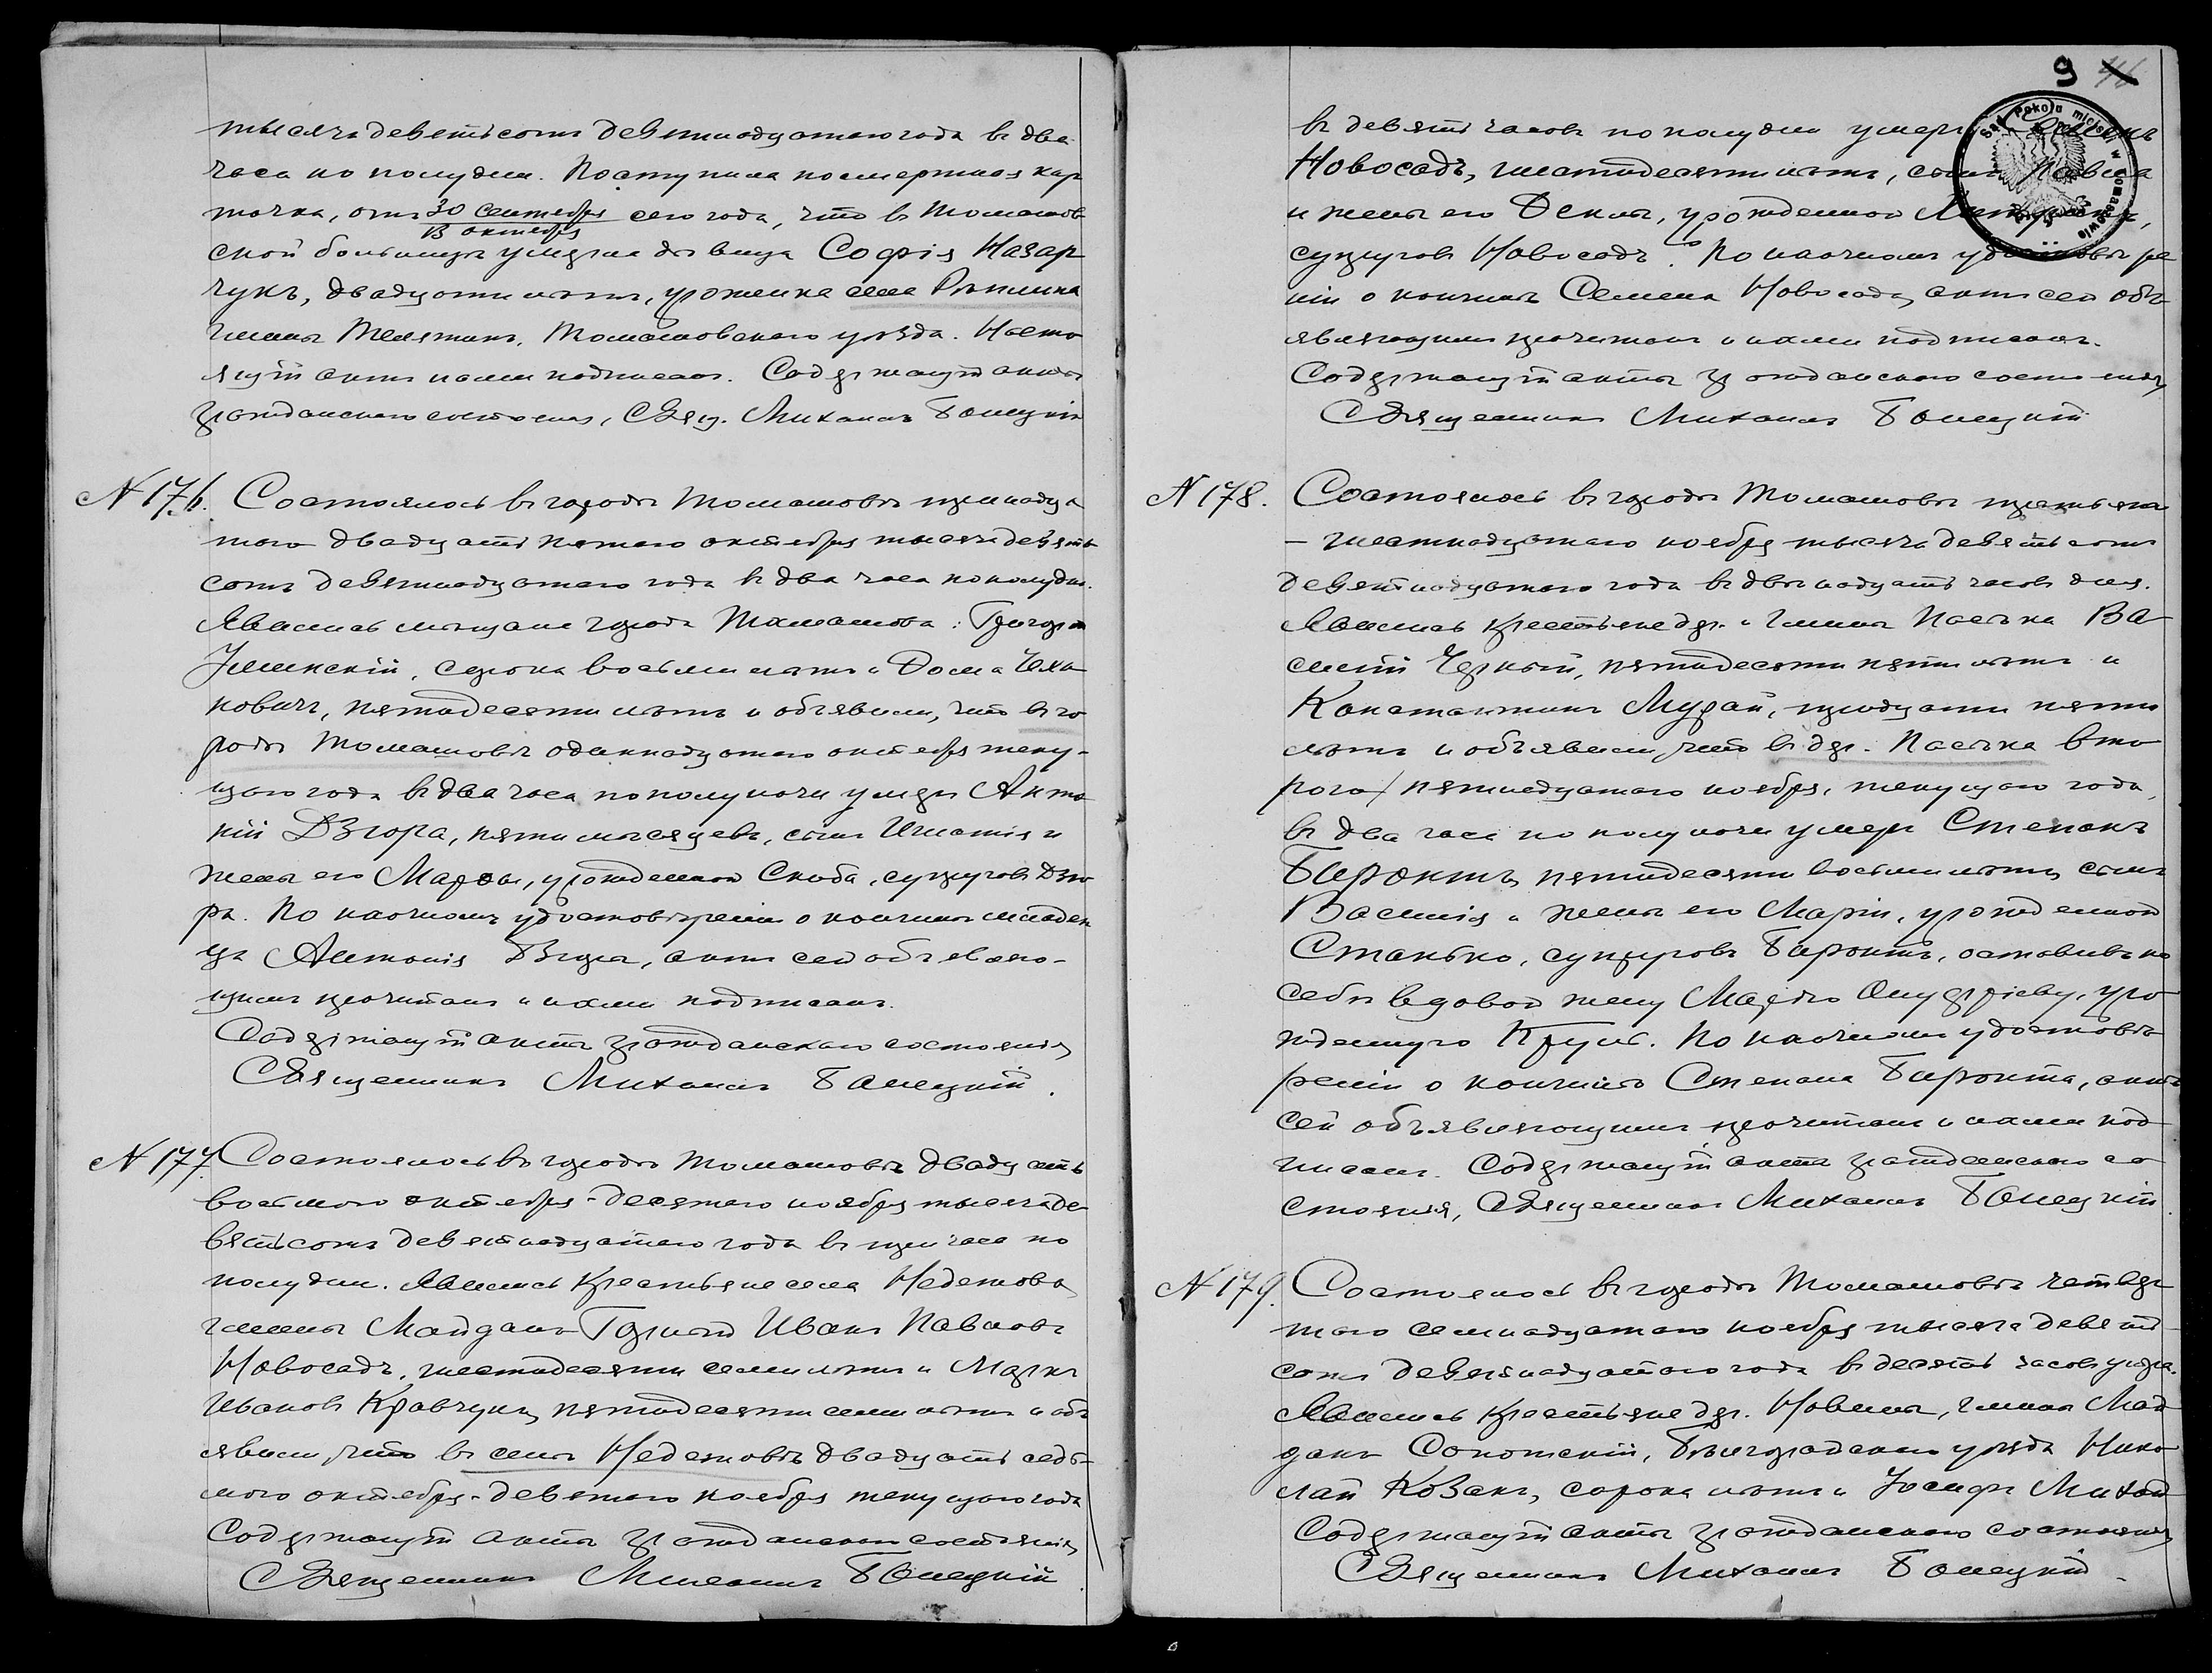 тысяча деветьсотъ девятнадцатаго года въ два
часа по полудни. Поступила посмертная кар
точка, отъ 30 Сентября / 13 октября сего года, что въ Томашов
ской больницѣ умерла дѣвица Софія Назар
чукъ, двадцати лѣтъ, уроженка села
гмины Телятинъ, Томашовскаго уѣзда. Насто
ящій актъ нами подписанъ. Содержащій акты
гражданскаго состоянія, Свящ. Михаилъ Бонецкій
N 176. Состоялось въ городѣ Томашовѣ тринадца
таго двадцать шестаго октября тысяча девять
сотъ девятнадцатаго года въ два часа пополудни.
Явились мѣщане города Томашова: Григорій
сорока восьми лѣтъ и Фома Чеха
новичъ, пятидесяти лѣтъ и объявили, что въ го
родѣ Томашовѣ одиннадцатаго октября теку-
щаго года въ два часа пополуночи умеръ Анто
ній Дзюра, пяти мѣсяцевъ, сынъ Игнатія и
жены его Марѳы, урожденной Скиба, супруговъ Дзю
ра. По наочномъ удостовѣреніи о кончинѣ младен
ца Антонія Дзюра, актъ сей объявляю-
щимъ прочитанъ и нами подписанъ.
Содержащій акты гражданскаго состоянія
Священникъ Михаилъ Бонецкій.
N 177. Состоялось въ городѣ Томашовѣ двадцать
восьмого октября - десятаго ноября тысяча де-
вятьсотъ девятнадцатаго года въ три часа по
полудни. Явились крестьяне села Недежова,
гмины Майданъ Горный Иванъ Павловъ
Новосадъ, шестидесяти семи лѣтъ и Маркъ
Ивановъ Кравчукъ, пятидесяти семи лѣтъ и объ
явили, что въ селѣ Недежовѣ двадцать седь-
мого октября - девятаго ноября текущаго года
Содержащій акты гражданскаго состоянія,
Священникъ Михаилъ Бонецкій.
9 46
въ девять часовъ по полудни умеръ Семенъ
Новосадъ, шестидесяти лѣтъ, сынъ Павла
и жены его Феклы, урожденной
супруговъ Новосадъ. По наочномъ удостовѣре
ніи о кончинѣ Семена Новосада, актъ сей объ
являющимъ прочитанъ и нами подписанъ.
Содержащій акты гражданскаго состоянія,
Священникъ Михаилъ Бонецкій
N 178. Состоялось въ городѣ Томашовѣ третьяго
– шестнадцатаго ноября тысяча девятьсотъ
девятнадцатаго года въ двѣнадцать часовъ дня.
Явились крестьяне дер. и гмины Пасѣка Ва
силій Черный, пятидесяти пяти лѣтъ и
Константинъ Мудай, тридцати пяти
лѣтъ и объявили, что въ дер. Пасѣка вто
рого / пятнадцатаго ноября, текущаго года,
въ два часа по полуночи умеръ Степанъ
Биронтъ, пятидесяти восьми лѣтъ, сынъ
Василія и жены его Маріи, урожденной
Станько, супруговъ Биронтъ, оставивъ по
себѣ вдовой жену Марію Онуфріеву, уро
жденную Круль. По наочномъ удостовѣ
реніи о кончинѣ Степана Биронта, актъ
сей объявляющимъ прочитанъ и нами под
писанъ. Содержащій акты гражданскаго со
стоянія, Священникъ Михаилъ Бонецкій.
N 179. Состоялось въ городѣ Томашовѣ четвер
таго семнадцатаго ноября тысяча девять
сотъ девятнадцатаго года въ десять часовъ утра.
Явились крестьяне дер. Новины, гмины Май
данъ Сопотскій, Бѣлгорайскаго уѣзда Нико
лай Козакъ, сорока лѣтъ и Іосифъ Михай
Содержащій акты гражданскаго состоянія,
Священникъ Михаилъ Бонецкій